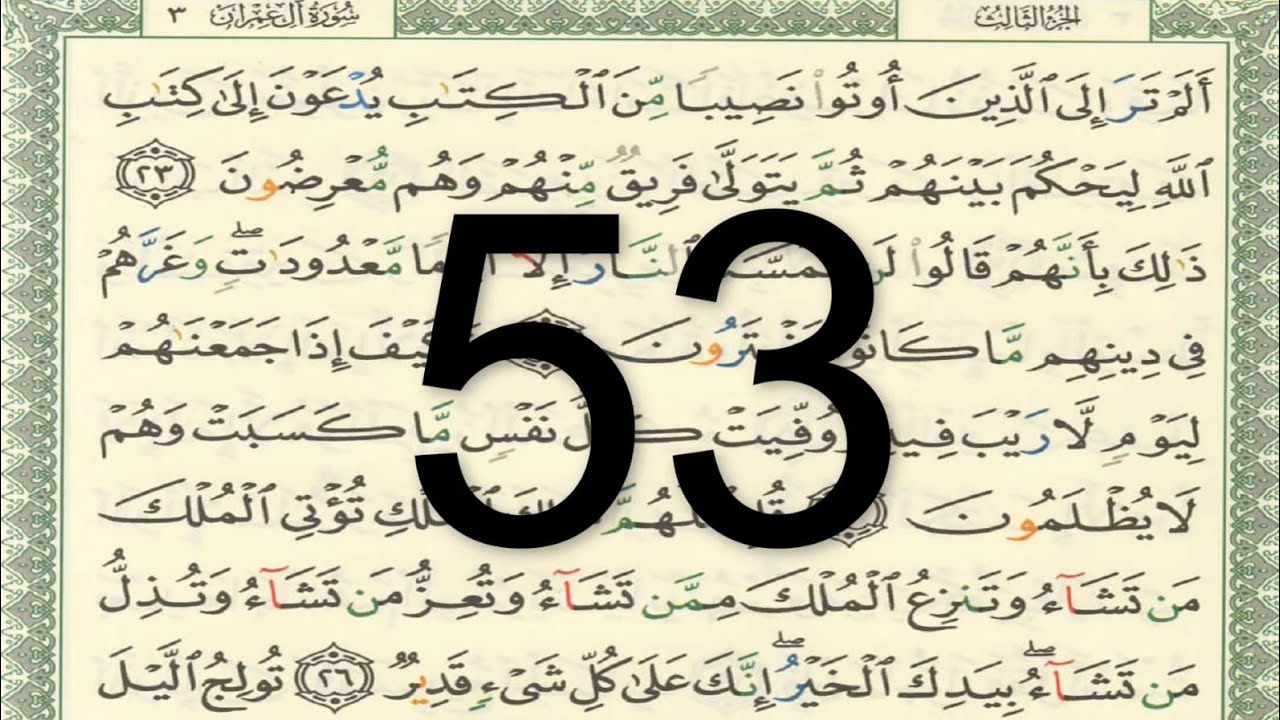 سُورَةُ آلِ عِمْرَان ٣
الجُزْءُ الثَّالِثُ
أَلَمْ تَرَ إِلَى ٱلَّذِينَ أُوتُوا۟ نَصِيبًا مِّنَ ٱلْكِتَٰبِ يُدْعَوْنَ إِلَىٰ كِتَٰبِ
ٱللَّهِ لِيَحْكُمَ بَيْنَهُمْ ثُمَّ يَتَوَلَّىٰ فَرِيقٌ مِّنْهُمْ وَهُم مُّعْرِضُونَ ٢٣
ذَٰلِكَ بِأَنَّهُمْ قَالُوا۟ ٱلنَّارُ إِلَّا مَّعْدُودَٰتٍۖ وَغَرَّهُمْ
فِى دِينِهِم مَّا كَانُوا۟ يَفْتَرُونَ فَكَيْفَ إِذَا جَمَعْنَٰهُمْ
لِيَوْمٍ لَّا رَيْبَ فِيهِ وَوُفِّيَتْ كُلُّ نَفْسٍ مَّا كَسَبَتْ وَهُمْ
لَا يُظْلَمُونَ ٱلْمُلْكِ تُؤْتِى ٱلْمُلْكَ
مَن تَشَآءُ وَتَنزِعُ ٱلْمُلْكَ مِمَّن تَشَآءُ وَتُعِزُّ مَن تَشَآءُ وَتُذِلُّ
مَن تَشَآءُۖ بِيَدِكَ ٱلْخَيْرُۖ إِنَّكَ عَلَىٰ كُلِّ شَىْءٍ قَدِيرٌ ٢٦ تُولِجُ ٱلَّيْلَ
53